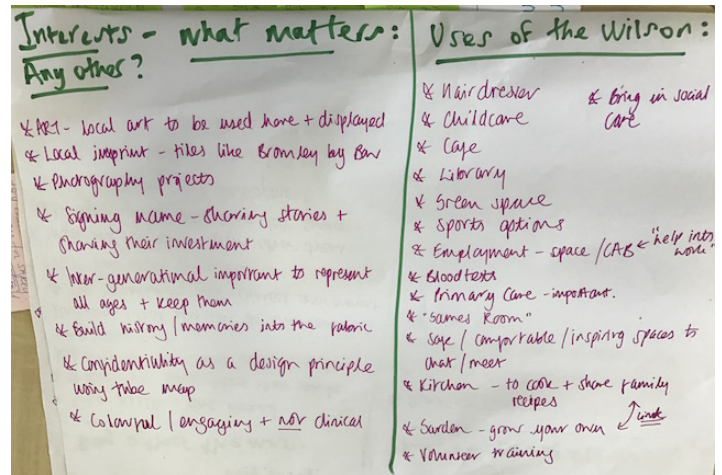 Interests - what matters:
Any other?
* ART - local art to be used here + displayed
* Local imprint - tiles like Bromley by Bow
* Photography projects
* Signing name - sharing stories +
sharing their investment
* Inter-generational important to represent
all ages + keep them
* Build history / memories into the fabric
* Confidentiality as a design principle
using tube map
* Colourful / engaging + not clinical
Uses of the Wilson:
* Hairdresser
* Bring in social
care
* Childcare
* Cafe
* Library
* Green space
* Sports options
* Employment - space / CAB ← "help into
work"
* Blood tests
* Primary Care - important.
* "Games Room"
* Safe / comfortable / inspiring spaces to
chat / meet
* Kitchen - to cook + share family
recipes
link
* Garden - grow your own
* Volunteer training